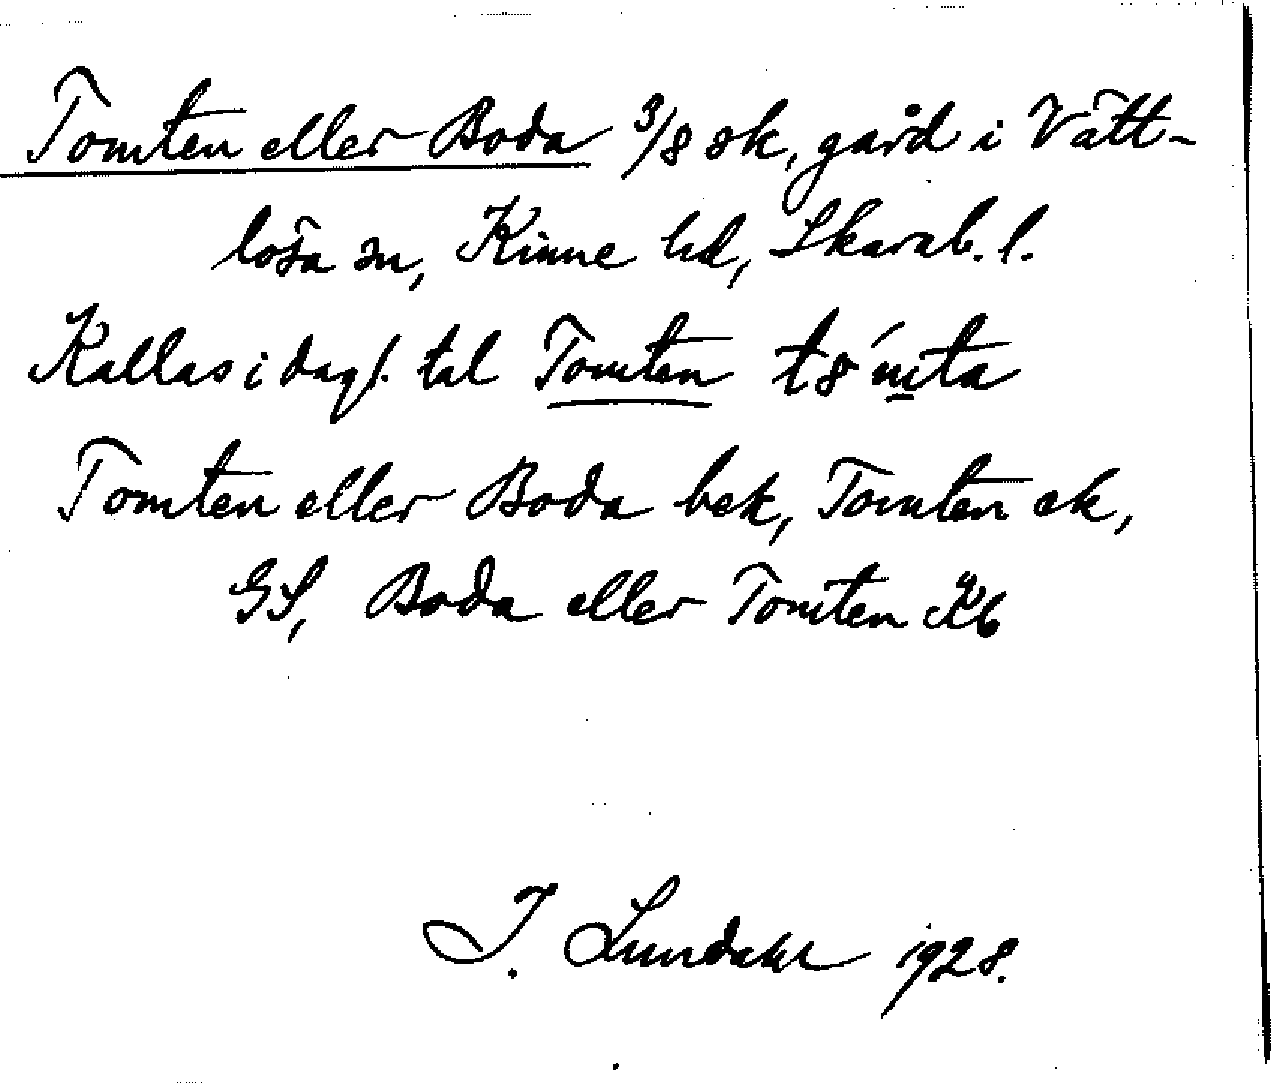 Tomten eller Boda 3/8 sk, gård i Vätt-
lösa sn, Kinne hd, Skarab. l.
Kallas i dagl. tal Tomten t8´mta
Tomten eller Boda bek, Tomten ek,
GS, Boda eller Tomten Kb
I. Lundahl 1928.